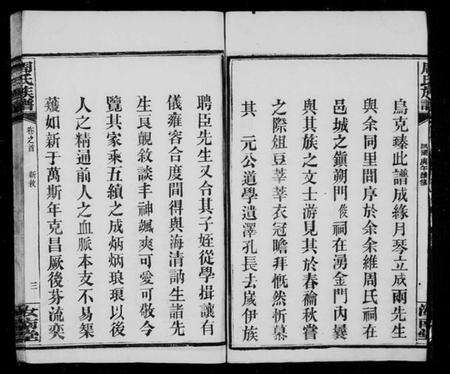 烏克臻此譜成緣月琴立成兩先生
與余同里閈序於余余維周氏祠在
邑城之鎭朔門後祠在湧金門內曩
與其族之文士游見其於春禴秋嘗
之際俎豆莘莘衣冠瞻拜慨然忻慕
其 元公道學遺澤孔長去歲伊族
聘臣先生又合其子姪從學揖讓自
儀雍容合度間得與海清訥生諸先
生艮覿敘談丰神颯爽可愛可敬今
覽其家乘五績之成炳炳琅琅以後
人之精通前人之血脈本支不易榘
蒦如新于萬斯年克昌厥後芬流奕
周氏族譜
卷之首
新敘
三
汝南堂